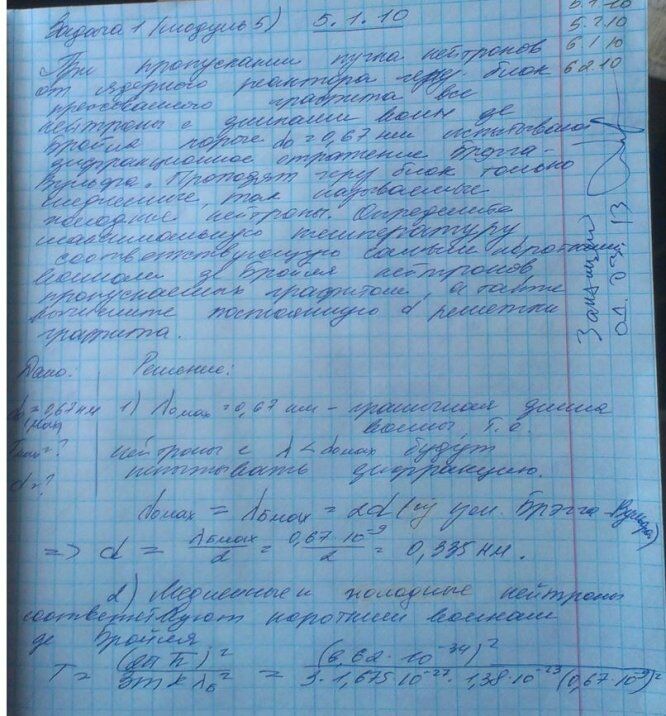 Задача 1 (модуль 5) 5.1.10
5.1.10
5.2.10
6.1.10
6.2.10
При пропускании пучка нейтронов
от ядерного реактора через блок
прессованного графита все
нейтроны с длинами волн де
Бройля короче λ0 = 0,67 нм испытывают
дифракционное отражение Брэгга-
Вульфа. Проходят через блок только
медленные, так называемые
холодные нейтроны. Определите
максимальную температуру
соответствующую самым коротким
волнам де Бройля нейтронов,
пропускаемых графитом, а также
вычислите постоянную d решетки
графита.
04.03.13
Дано: Решение:
= 0,67 нм 1) λ0max = 0,67 нм - граничная длина
волны, т.е.
нейтроны с λ < λ0max будут
испытывать дифракцию.
d - ?
λ0max = λБmax = 2d (из усл. Брэгга-Вульфа)
=> d = λБmax / 2 = 0,67·10^-9 / 2 = 0,335 нм.
2) Медленные и холодные нейтроны
соответствуют коротким волнам
де Бройля
T = (2πħ)^2 / 3mkλБ^2 = (6,62·10^-34)^2 / 3·1,675·10^-27·1,38·10^-23 (0,67·10^-9)^2